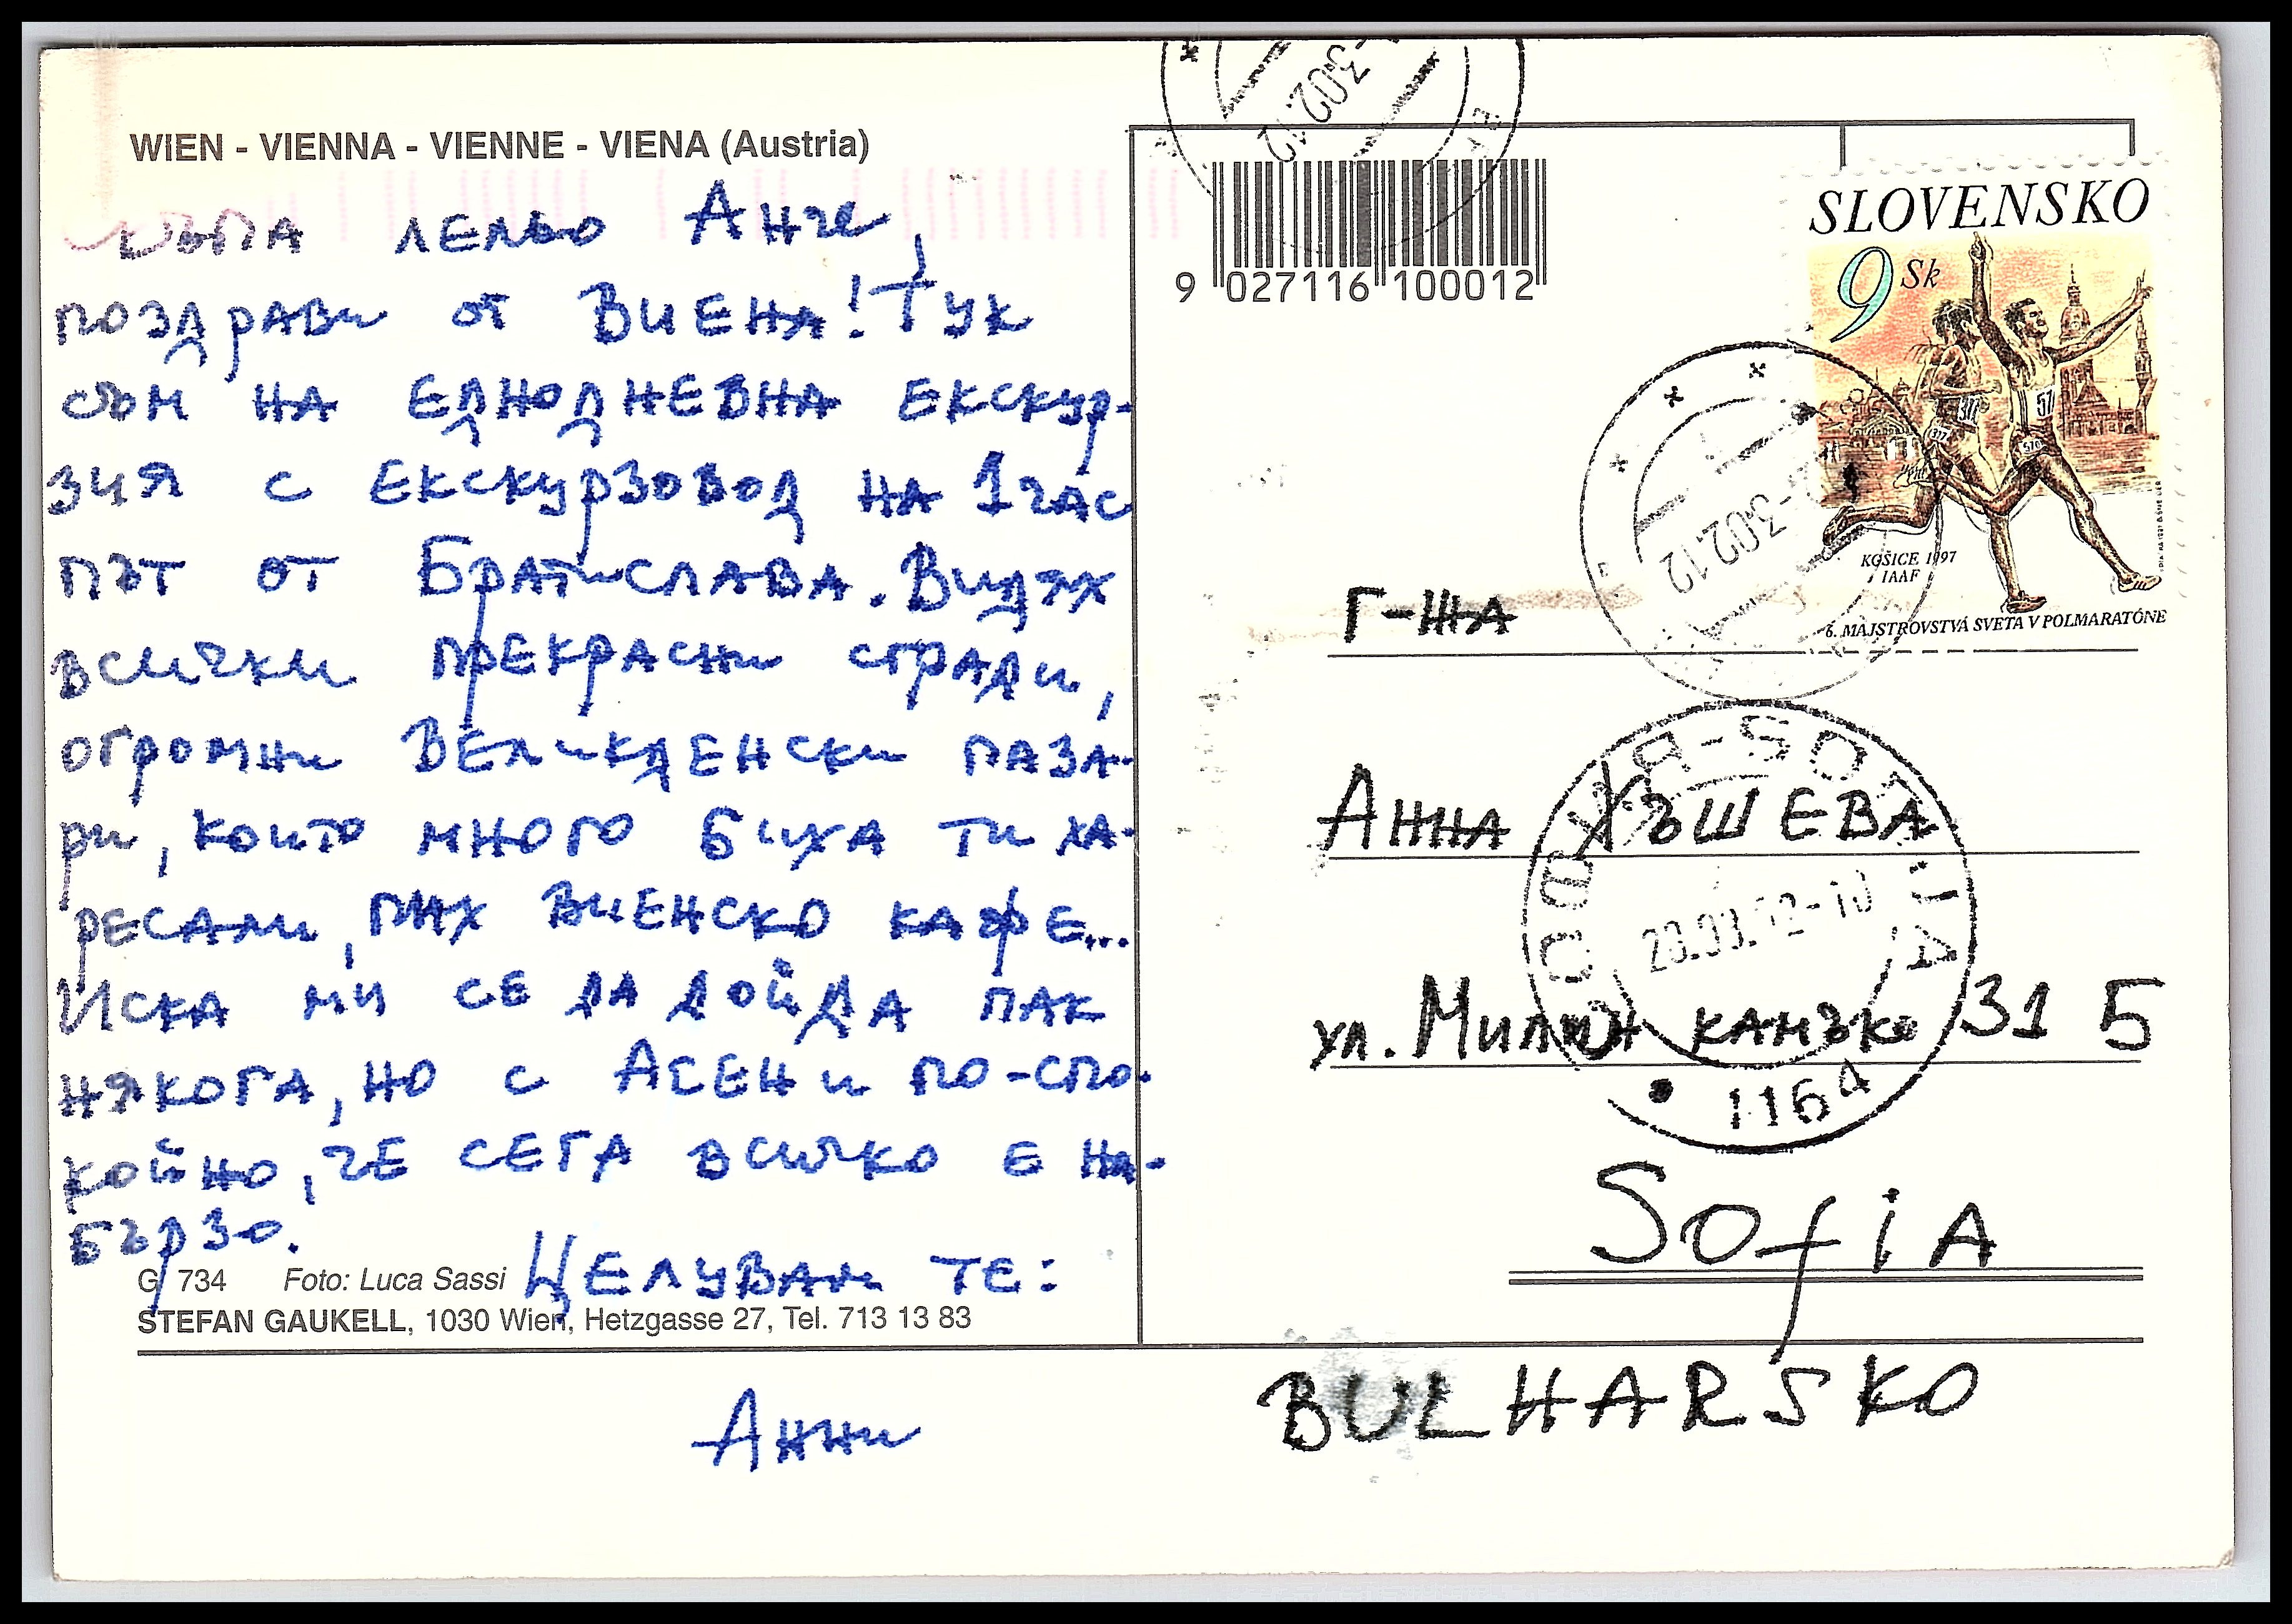 WIEN - VIENNA - VIENNE - VIENA (Austria)
Скъпа лельо Анче,
поздрави от Виена! Тук
съм на еднодневна екскур-
зия с екскурзовод на 1 час
път от Братислава. Видях
всички прекрасни сгради,
огромни Великденски паза-
ри, които много биха ти ха-
ресали, пих виенско кафе...
Иска ми се да дойда пак
някога, но с Асен и по-спо-
койно, че сега всичко е на-
бързо.
Целувам те:
Анни
G 734 Foto: Luca Sassi
STEFAN GAUKELL, 1030 Wien, Hetzgasse 27, Tel. 713 13 83
9 027116 100012
SLOVENSKO
9 Sk
KOŠICE 1997
IAAF
6. MAJSTROVSTVÁ SVETA V POLMARATÓNE
-302.12
-302.12
Г-жа
Анна Хъшева
ул. Милин камък 31 Б
Sofia
BULHARSKO
СОФИЯ-SOFIA
1164